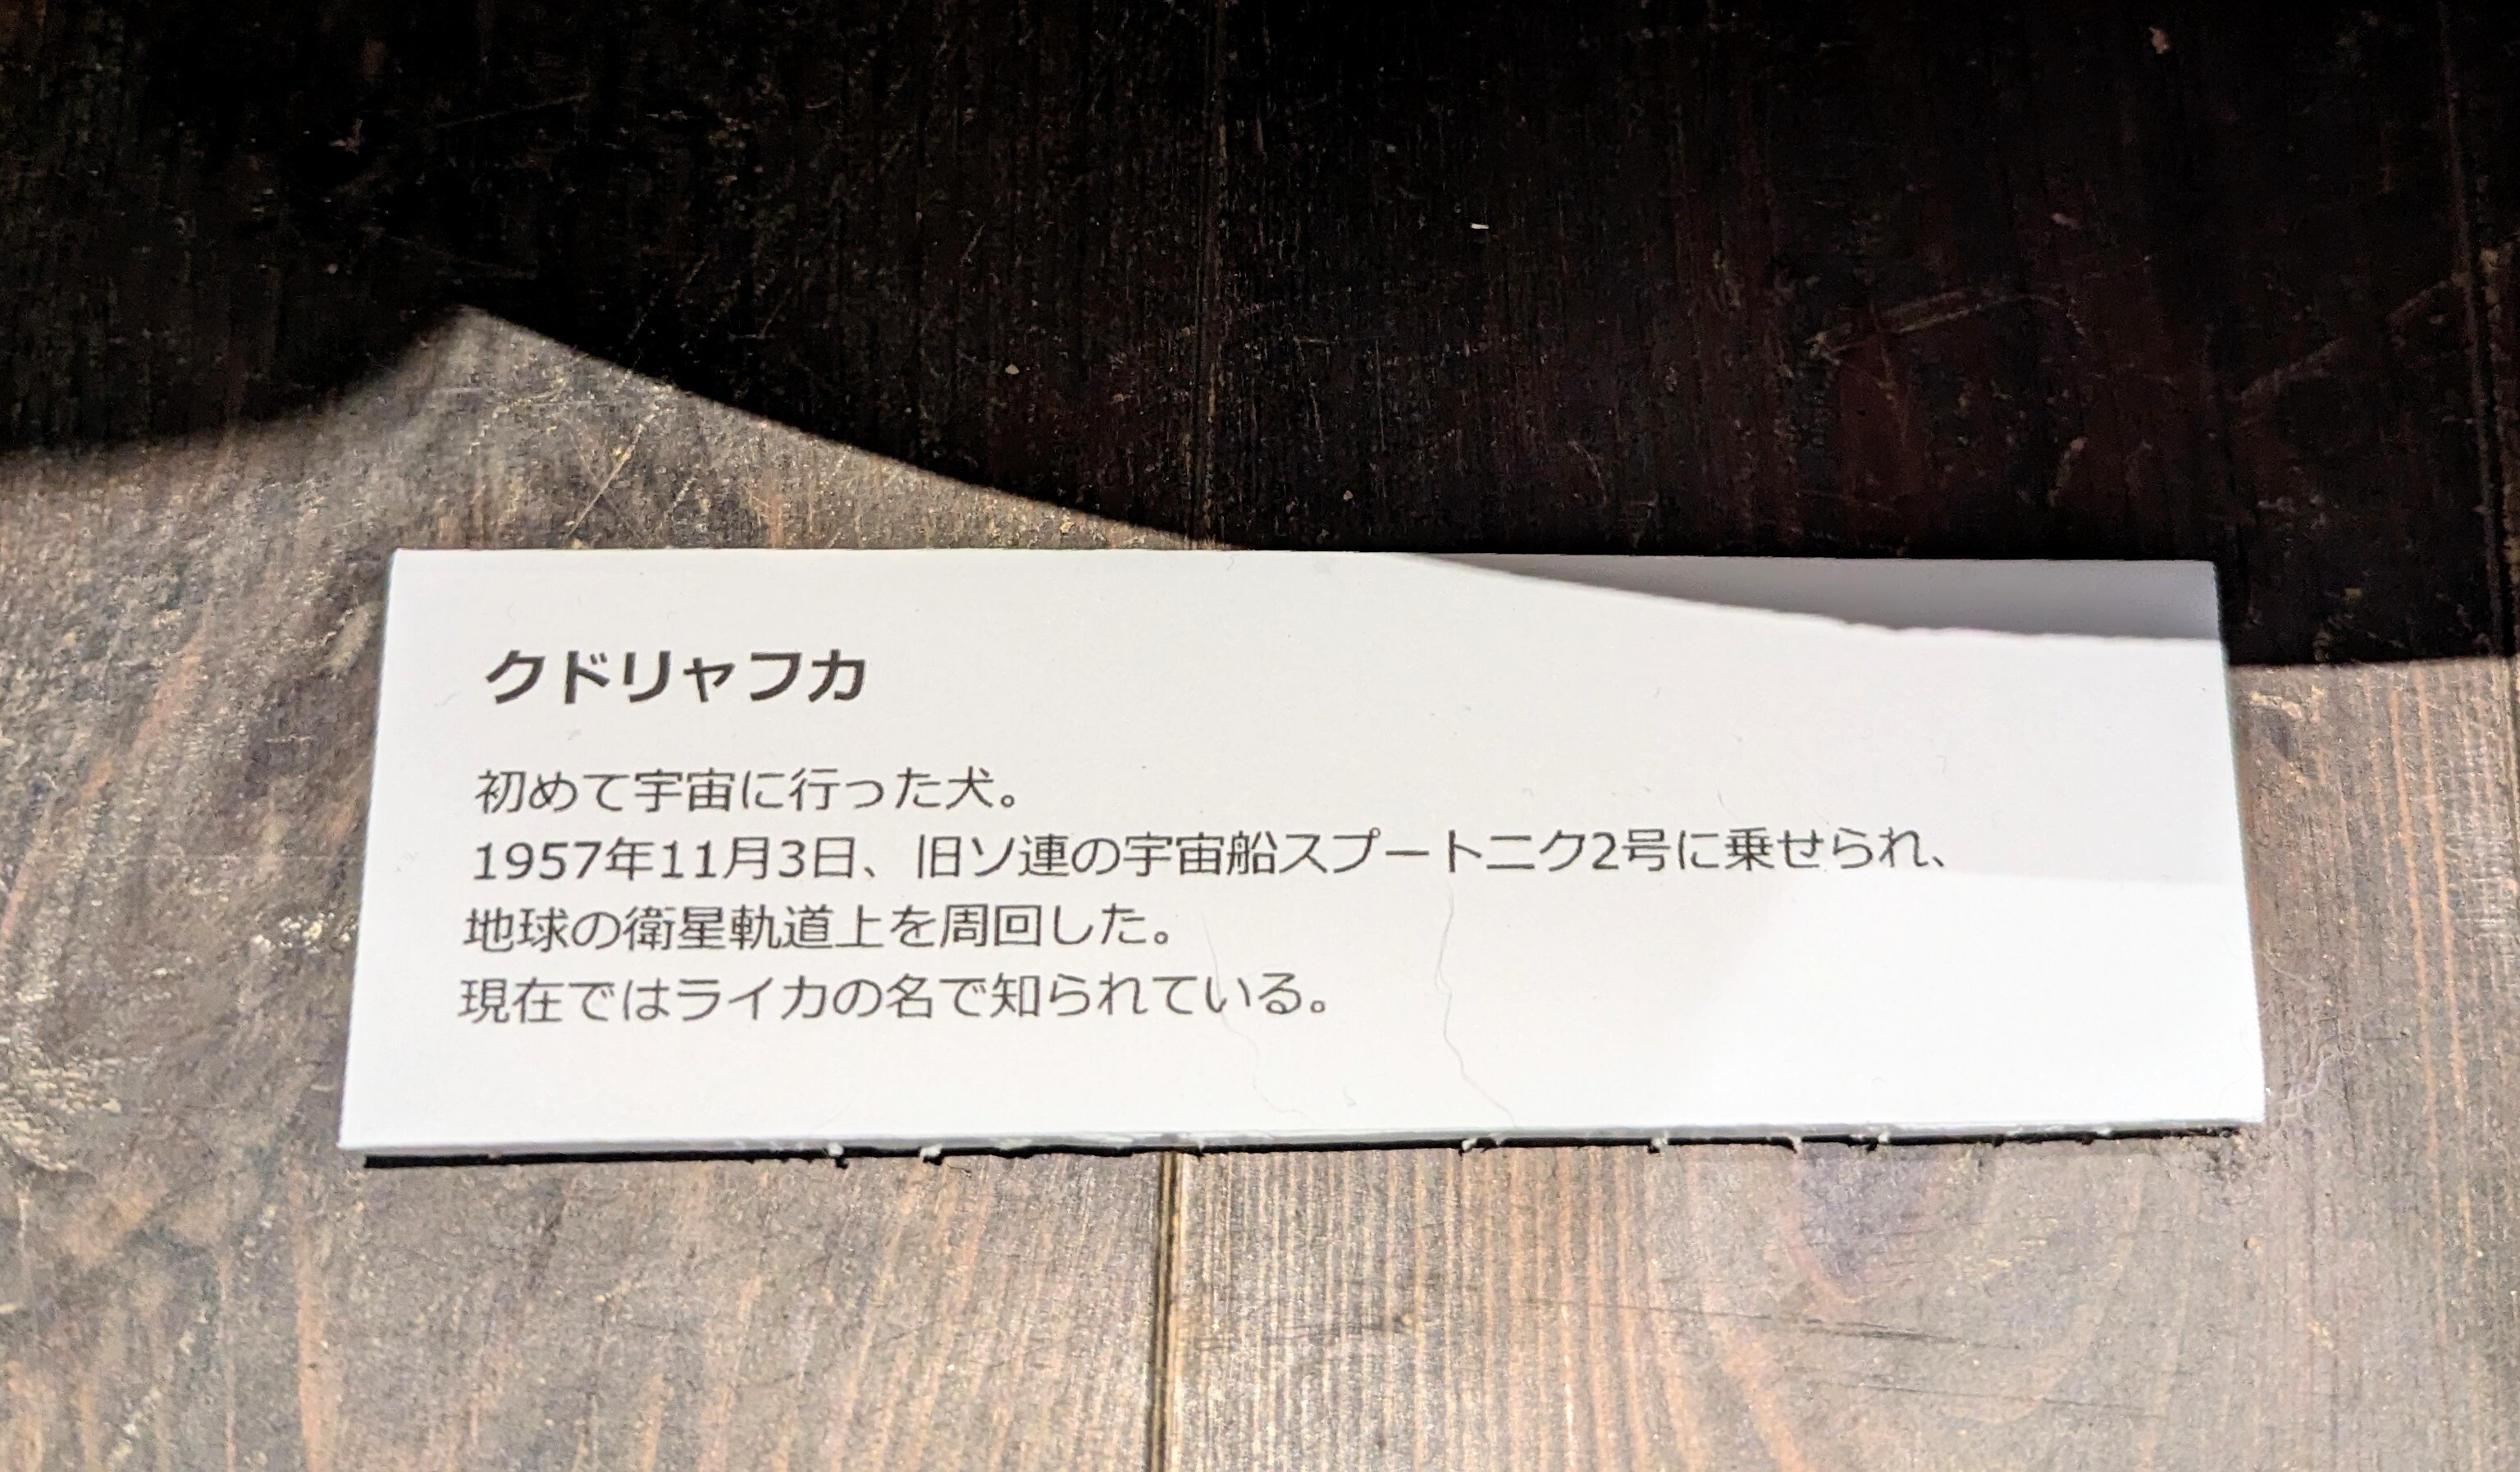 クドリャフカ
初めて宇宙に行った犬。
1957年11月3日、旧ソ連の宇宙船スプートニク2号に乗せられ、
地球の衛星軌道上を周回した。
現在ではライカの名で知られている。